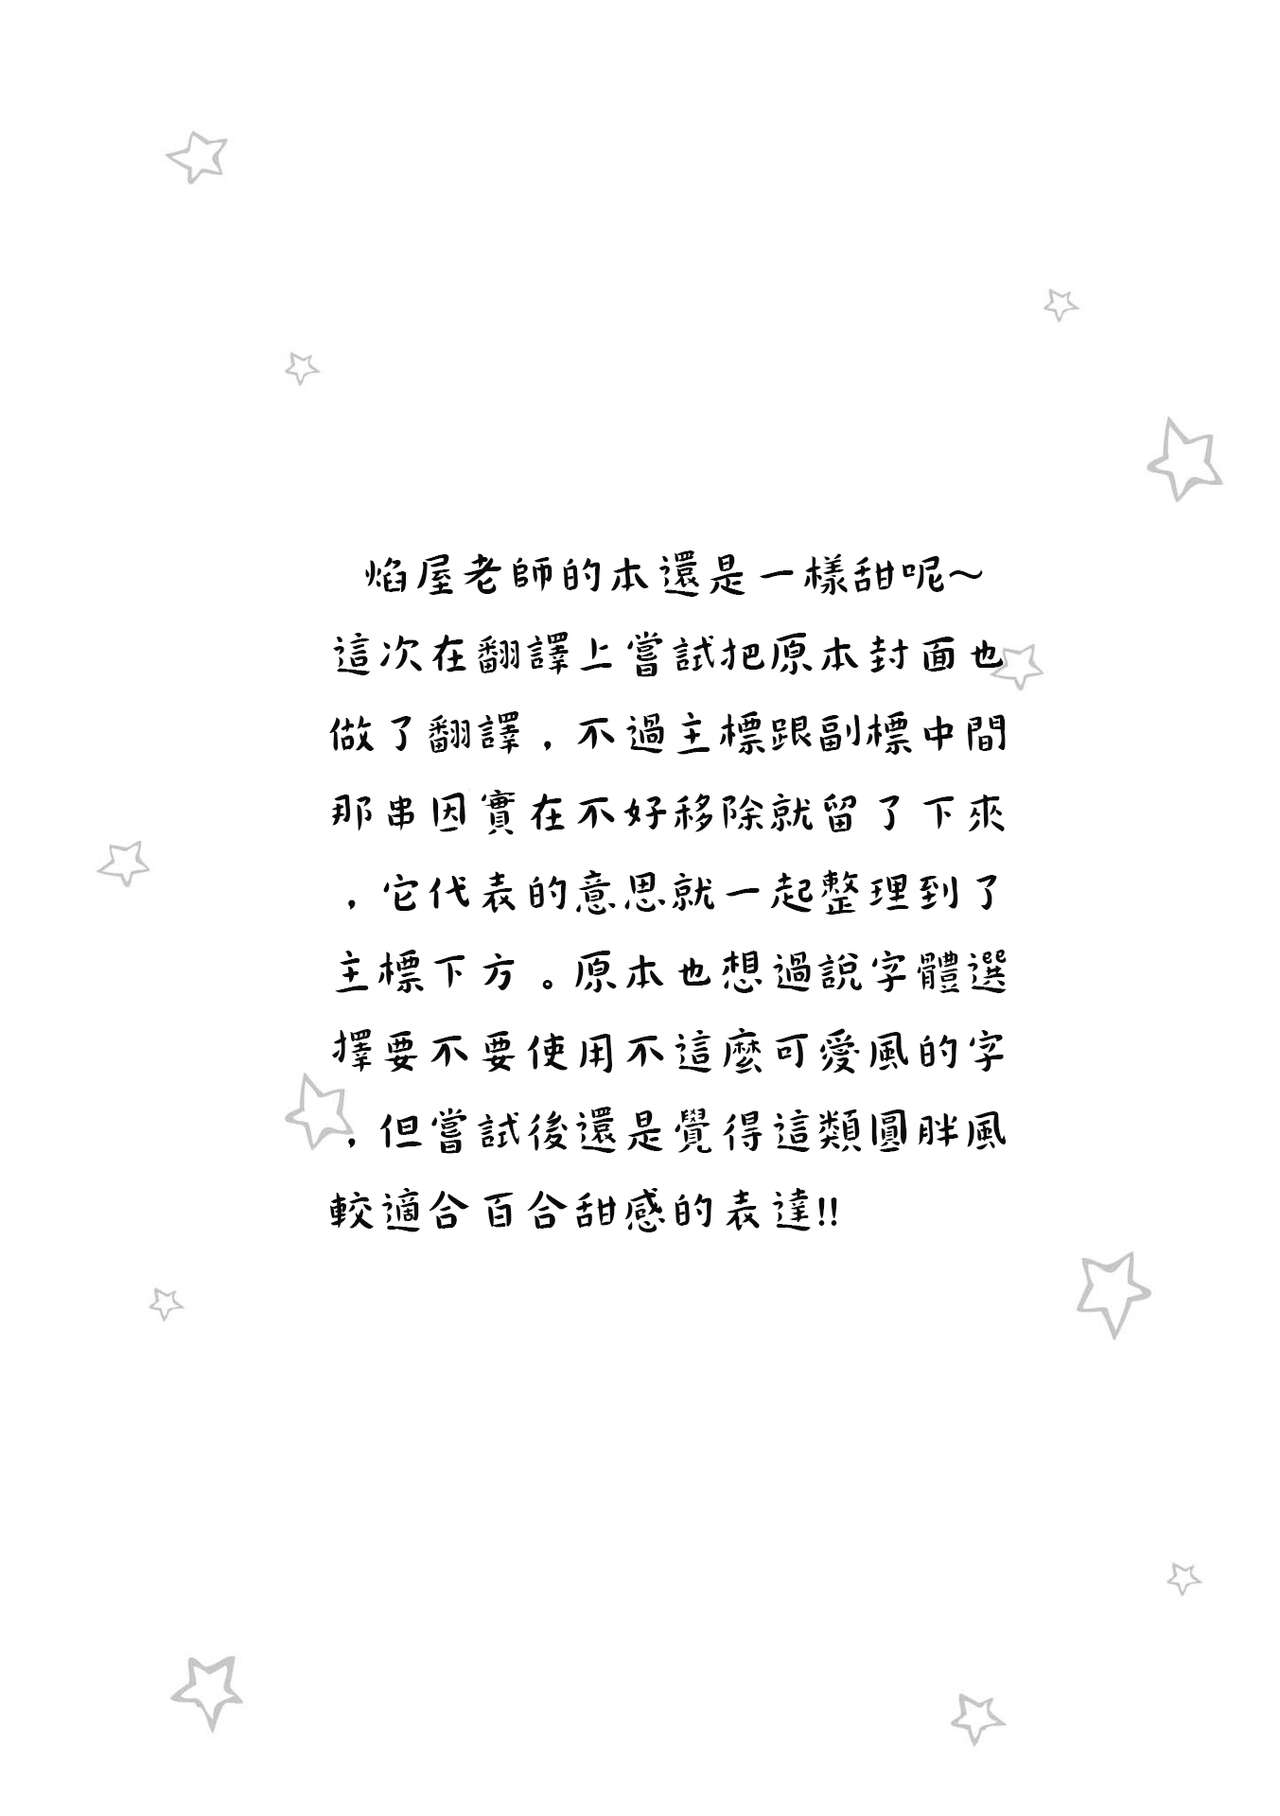 焰屋老師的本還是一樣甜呢~
這次在翻譯上嘗試把原本封面也
做了翻譯，不過主標跟副標中間
那串因實在不好移除就留了下來
，它代表的意思就一起整理到了
主標下方。原本也想過說字體選
擇要不要使用不這麼可愛風的字
，但嘗試後還是覺得這類圓胖風
較適合百合甜感的表達!!